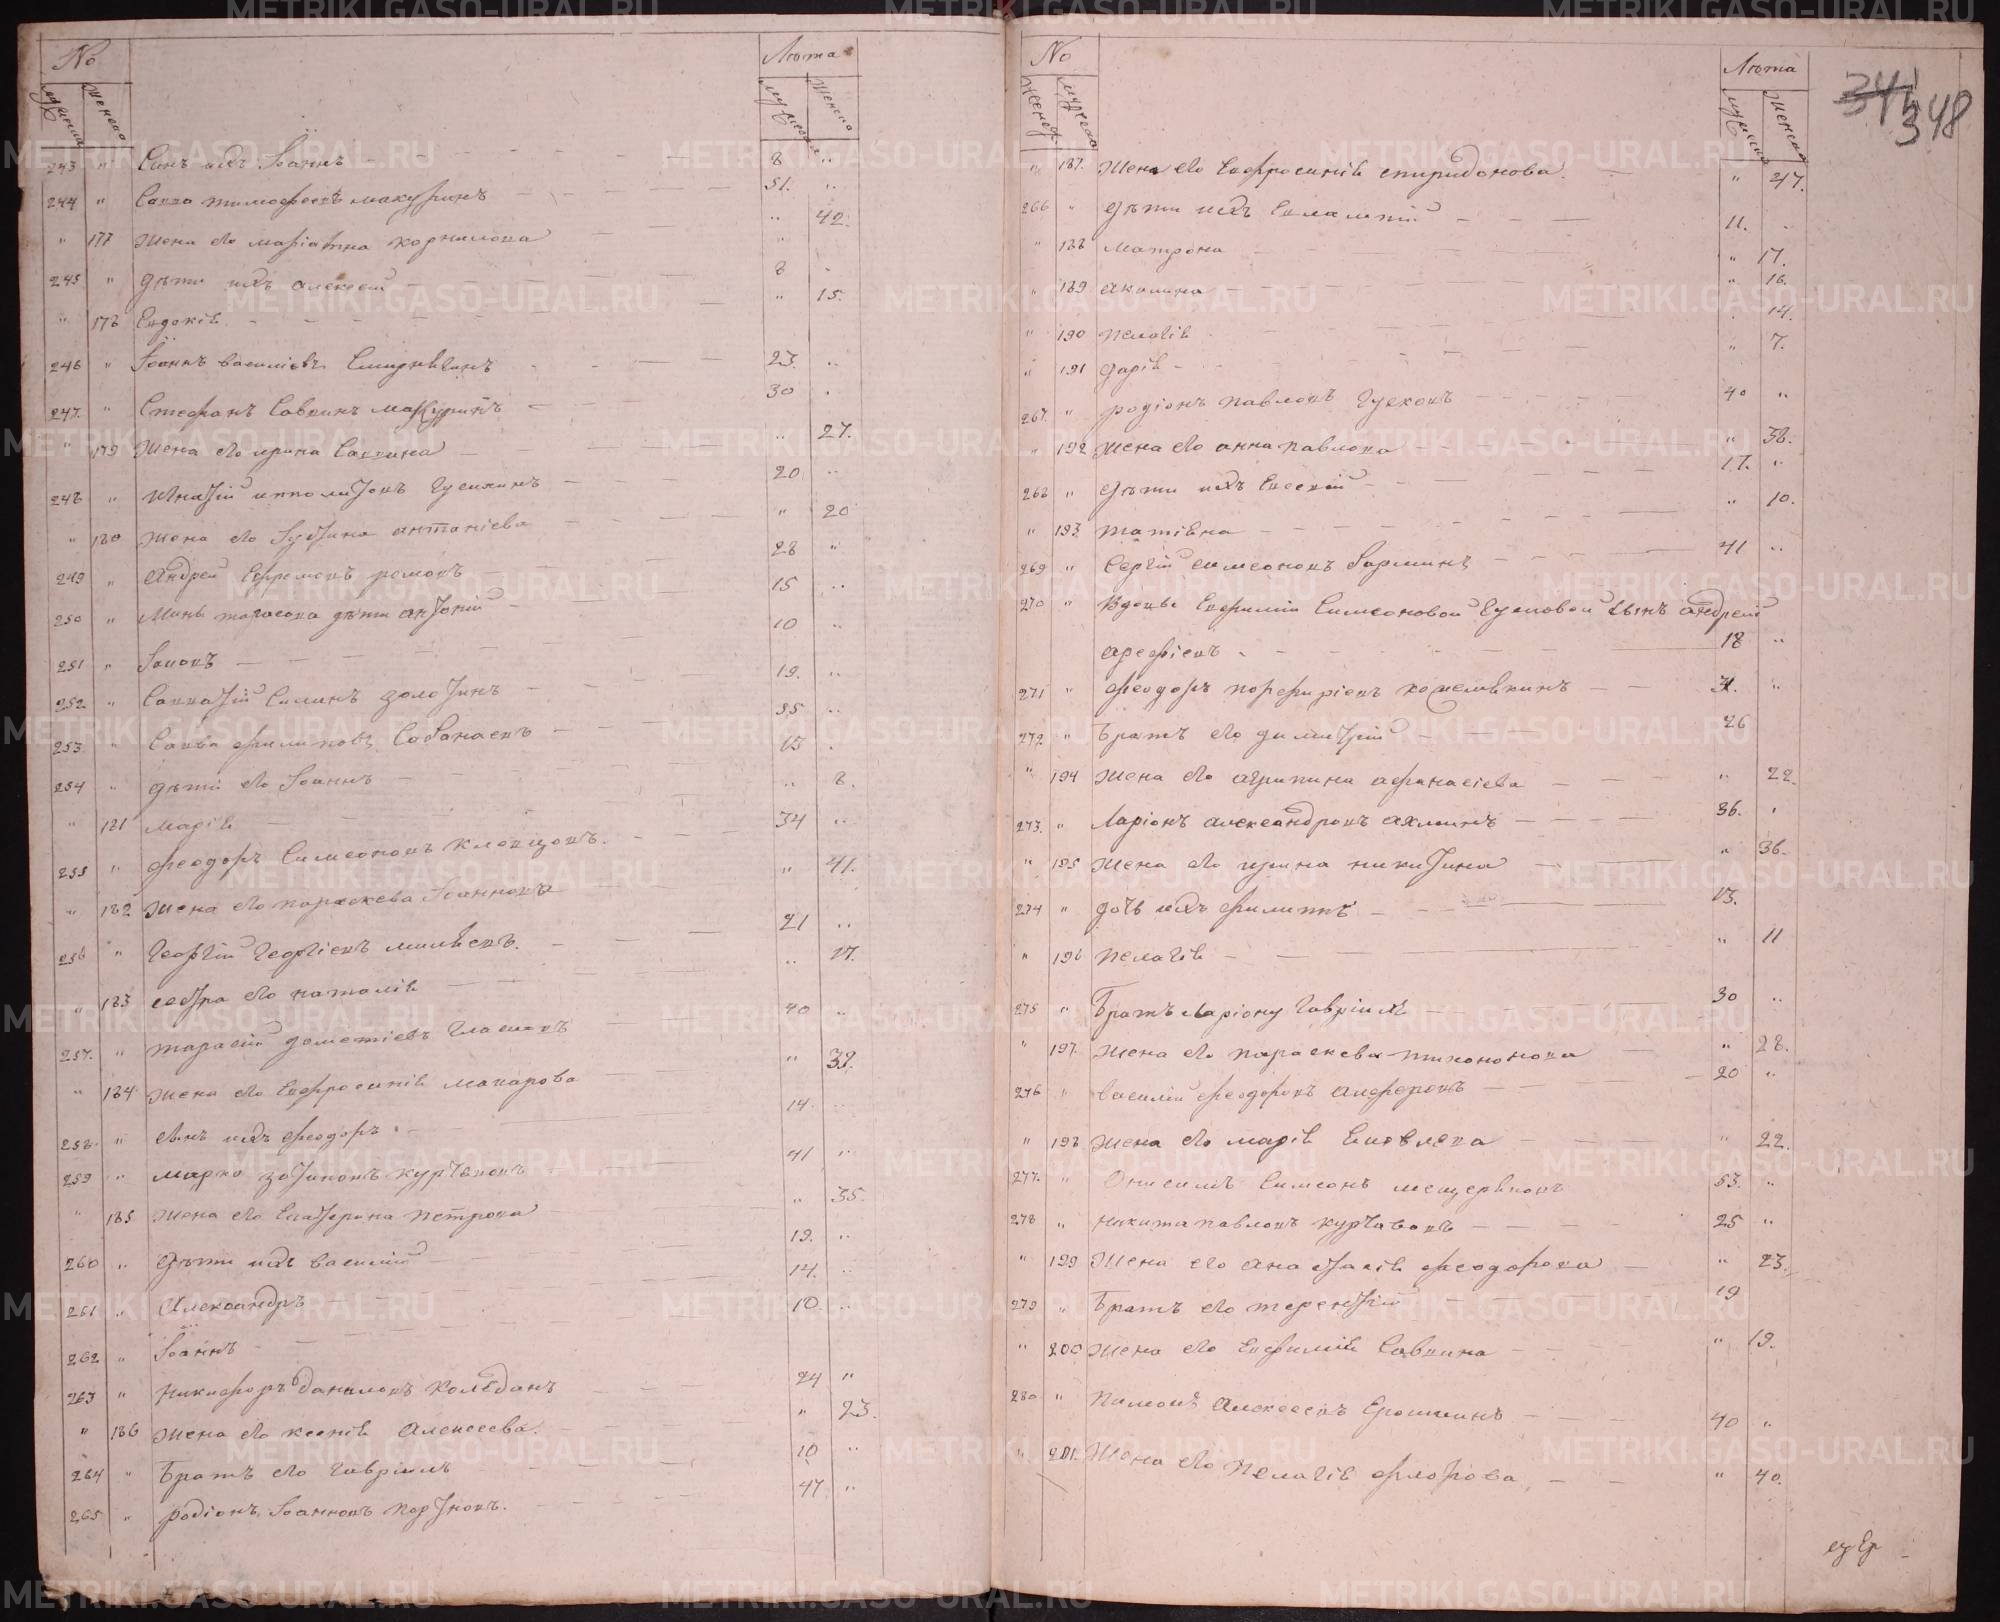 № Лѣта
мужеска женска мужеска женска
243 " Сынъ ихъ Іоаннъ 8 "
244 " Савва Тимофеевъ Макуринъ 51. "
" 177 Жена его Маріамна Корнилова " 42.
245 " Дѣти ихъ Алексей 8 "
" 178 Евдокія " 15.
246 " Іоаннъ Василіевъ 23. "
247. " Стефанъ Саввинъ Макуринъ 30 "
" 179 Жена его Ирина Саввина " 27.
248 " Игнатій Ипполитовъ 20 "
" 180 Жена его Іустина " 20
249 " Андрей Ефремовъ 28 "
250 " дѣти Антоній 15 "
251 " 10 "
252 " Савватій Силинъ Золотинъ 19. "
253 " Савва Филиповъ 35 "
254 " дѣти его Іоаннъ 15 "
" 181 Марія " 8.
255 " Феодоръ Симеоновъ Клевцовъ. 34 "
" 182 Жена его Параскева Іоаннова " 41.
256 " Георгій Георгіевъ Миляевъ. 21 "
" 183 сестра его Наталія " 17.
257. " Тарасій Дометіевъ 40 "
" 184 Жена его Евфросинія Макарова " 39.
258. " сынъ ихъ Феодоръ 14 "
259 " Марко Зотиковъ Курчавовъ 41 "
" 185 Жена его Екатерина Петрова " 35.
260 " Дѣти ихъ Василій 19. "
261 " Александръ 14. "
262 " Іоаннъ 10. "
263 " Никифоръ Даниловъ 24 "
" 186 Жена его Ксенія Алексеева. " 23.
264 " Братъ его Гавріилъ 10 "
265 " Родіонъ Іоанновъ Портновъ. 47 "
№ Лѣта
женск мужеска мужеска женска
341 348
" 187. Жена его Евфросинія Спиридонова. " 47.
266 " Дѣти ихъ 11. "
" 188 Матрона " 17.
" 189 Акилина " 16.
" 190 Пелагія " 14.
" 191 Дарія " 7.
267. " Родіонъ Павловъ Гусковъ 40 "
" 192 Жена его Анна Павлова " 38.
268 " Дѣти ихъ Евсевій 17. "
" 193 Татіяна " 10.
269 " Сергій Симеоновъ 41 "
270 " Вдовы Евфиміи Симеоновой сынъ Андрей
Арефіевъ 18 "
271 " Феодоръ Порфиріевъ 31. "
272. " Братъ его Димитрій 26
" 194 Жена его Агрипина Афанасіева " 22.
273. " Ларіонъ Александровъ 36. "
" 195 Жена его Ирина Никитина " 36.
274 " дочь ихъ Филиппъ 13. "
" 196 Пелагія " 11
275 " Братъ Ларіону Гавріилъ 30 "
" 197. Жена его Параскева Тихонова " 28.
276 " Василій Феодоровъ Алферовъ 20 "
" 198 Жена его Марія Іяковлева " 22.
277. " Онисимъ Симеонъ Мещеряковъ 53. "
278 " Никита Павловъ Курчавовъ 25 "
" 199 Жена его Анастасія Феодорова " 23.
279 " Братъ его Терентій 19
" 200 Жена его Евфимія Саввина " 19.
280 " Пимонъ Алексеевъ Ерошкинъ 40 "
" 201. Жена его Пелагія Флорова " 40.